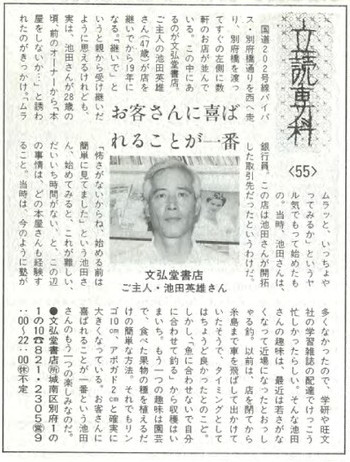 立読専科
〈55〉
お客さんに喜ば
れることが一番
国道202号線バイパ
ス・別府橋通りを西へ走
り、別府橋を渡っ
てすぐの左側に数
軒のお店が並んで
いる。この中にあ
るのが文弘堂書店。
ご主人の池田英雄
さん(47歳)が店を
継いで19年に
なる。"継いで"と
いうと親から受け継いだ
ように思えるけれども、
実は、池田さんが28歳の
頃前のオーナーから"本
屋をしないか…"と誘わ
れたのがきっかけ。"ムラ
ムラッと、いっちょや
ってみるか"というヤ
ル気でもって始めたも
の。当時、池田さんは、
銀行員。この店は池田さんが開拓
した取引先だったというわけだ。
「怖さがないからね、始める前は
簡単に見てました」という池田さ
ん、始めてみると、これが難しい。
だいいち時間がない、と、この辺
の事情は、どの本屋さんも経験す
ること。当時は、今のように塾が
文弘堂書店
ご主人・池田英雄さん
多くなかったので、学研や旺文
社の学習雑誌の配達でけっこう
忙しかったらしい。そんな池田
さんの趣味は、最近は若さがな
くなって近場になったとおっし
ゃる釣。以前は、店を閉めてから
糸島まで車を飛ばして出かけて
いたそうで、タイミングとして
はちょうど良かったとのこと。
しかし「魚に合わせないで自分
に合わせて釣る」から収穫はい
まいち。もう一つの趣味は園芸
で、食べた果物の種を植えるだ
けの簡単な方法。それでもリン
ゴ10cm、アボガド2cmと確実に
大きくなっている。お客さんに
喜ばれることが一番という池田
さんのもう一つの楽しみなのだ。
●文弘堂書店 城南区別府1の
1の10☎821・2305 営9
:00〜22:00 休不定